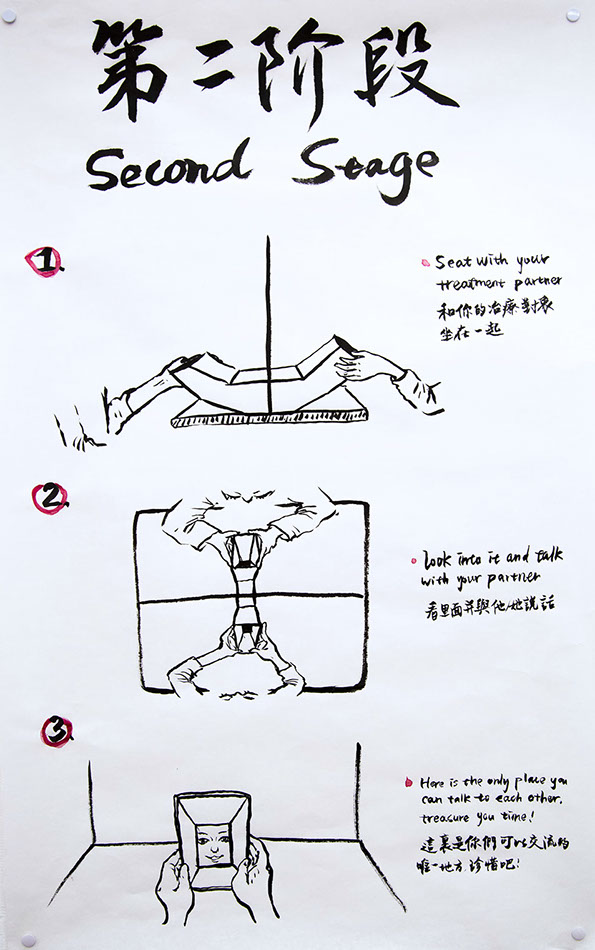 第二阶段
Second Stage
1.
Seat with your
treatment partner
和你的治療對象
坐在一起
2.
Look into it and talk
with your partner
看里面并與他/她説話
3.
Here is the only place you
can talk to each other,
treasure you time!
這裏是你們可以交流的
唯一地方 珍惜吧!